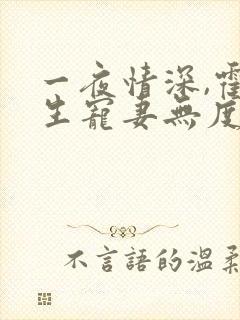 一夜情深,霍
生寵妻無度
不言語的溫柔